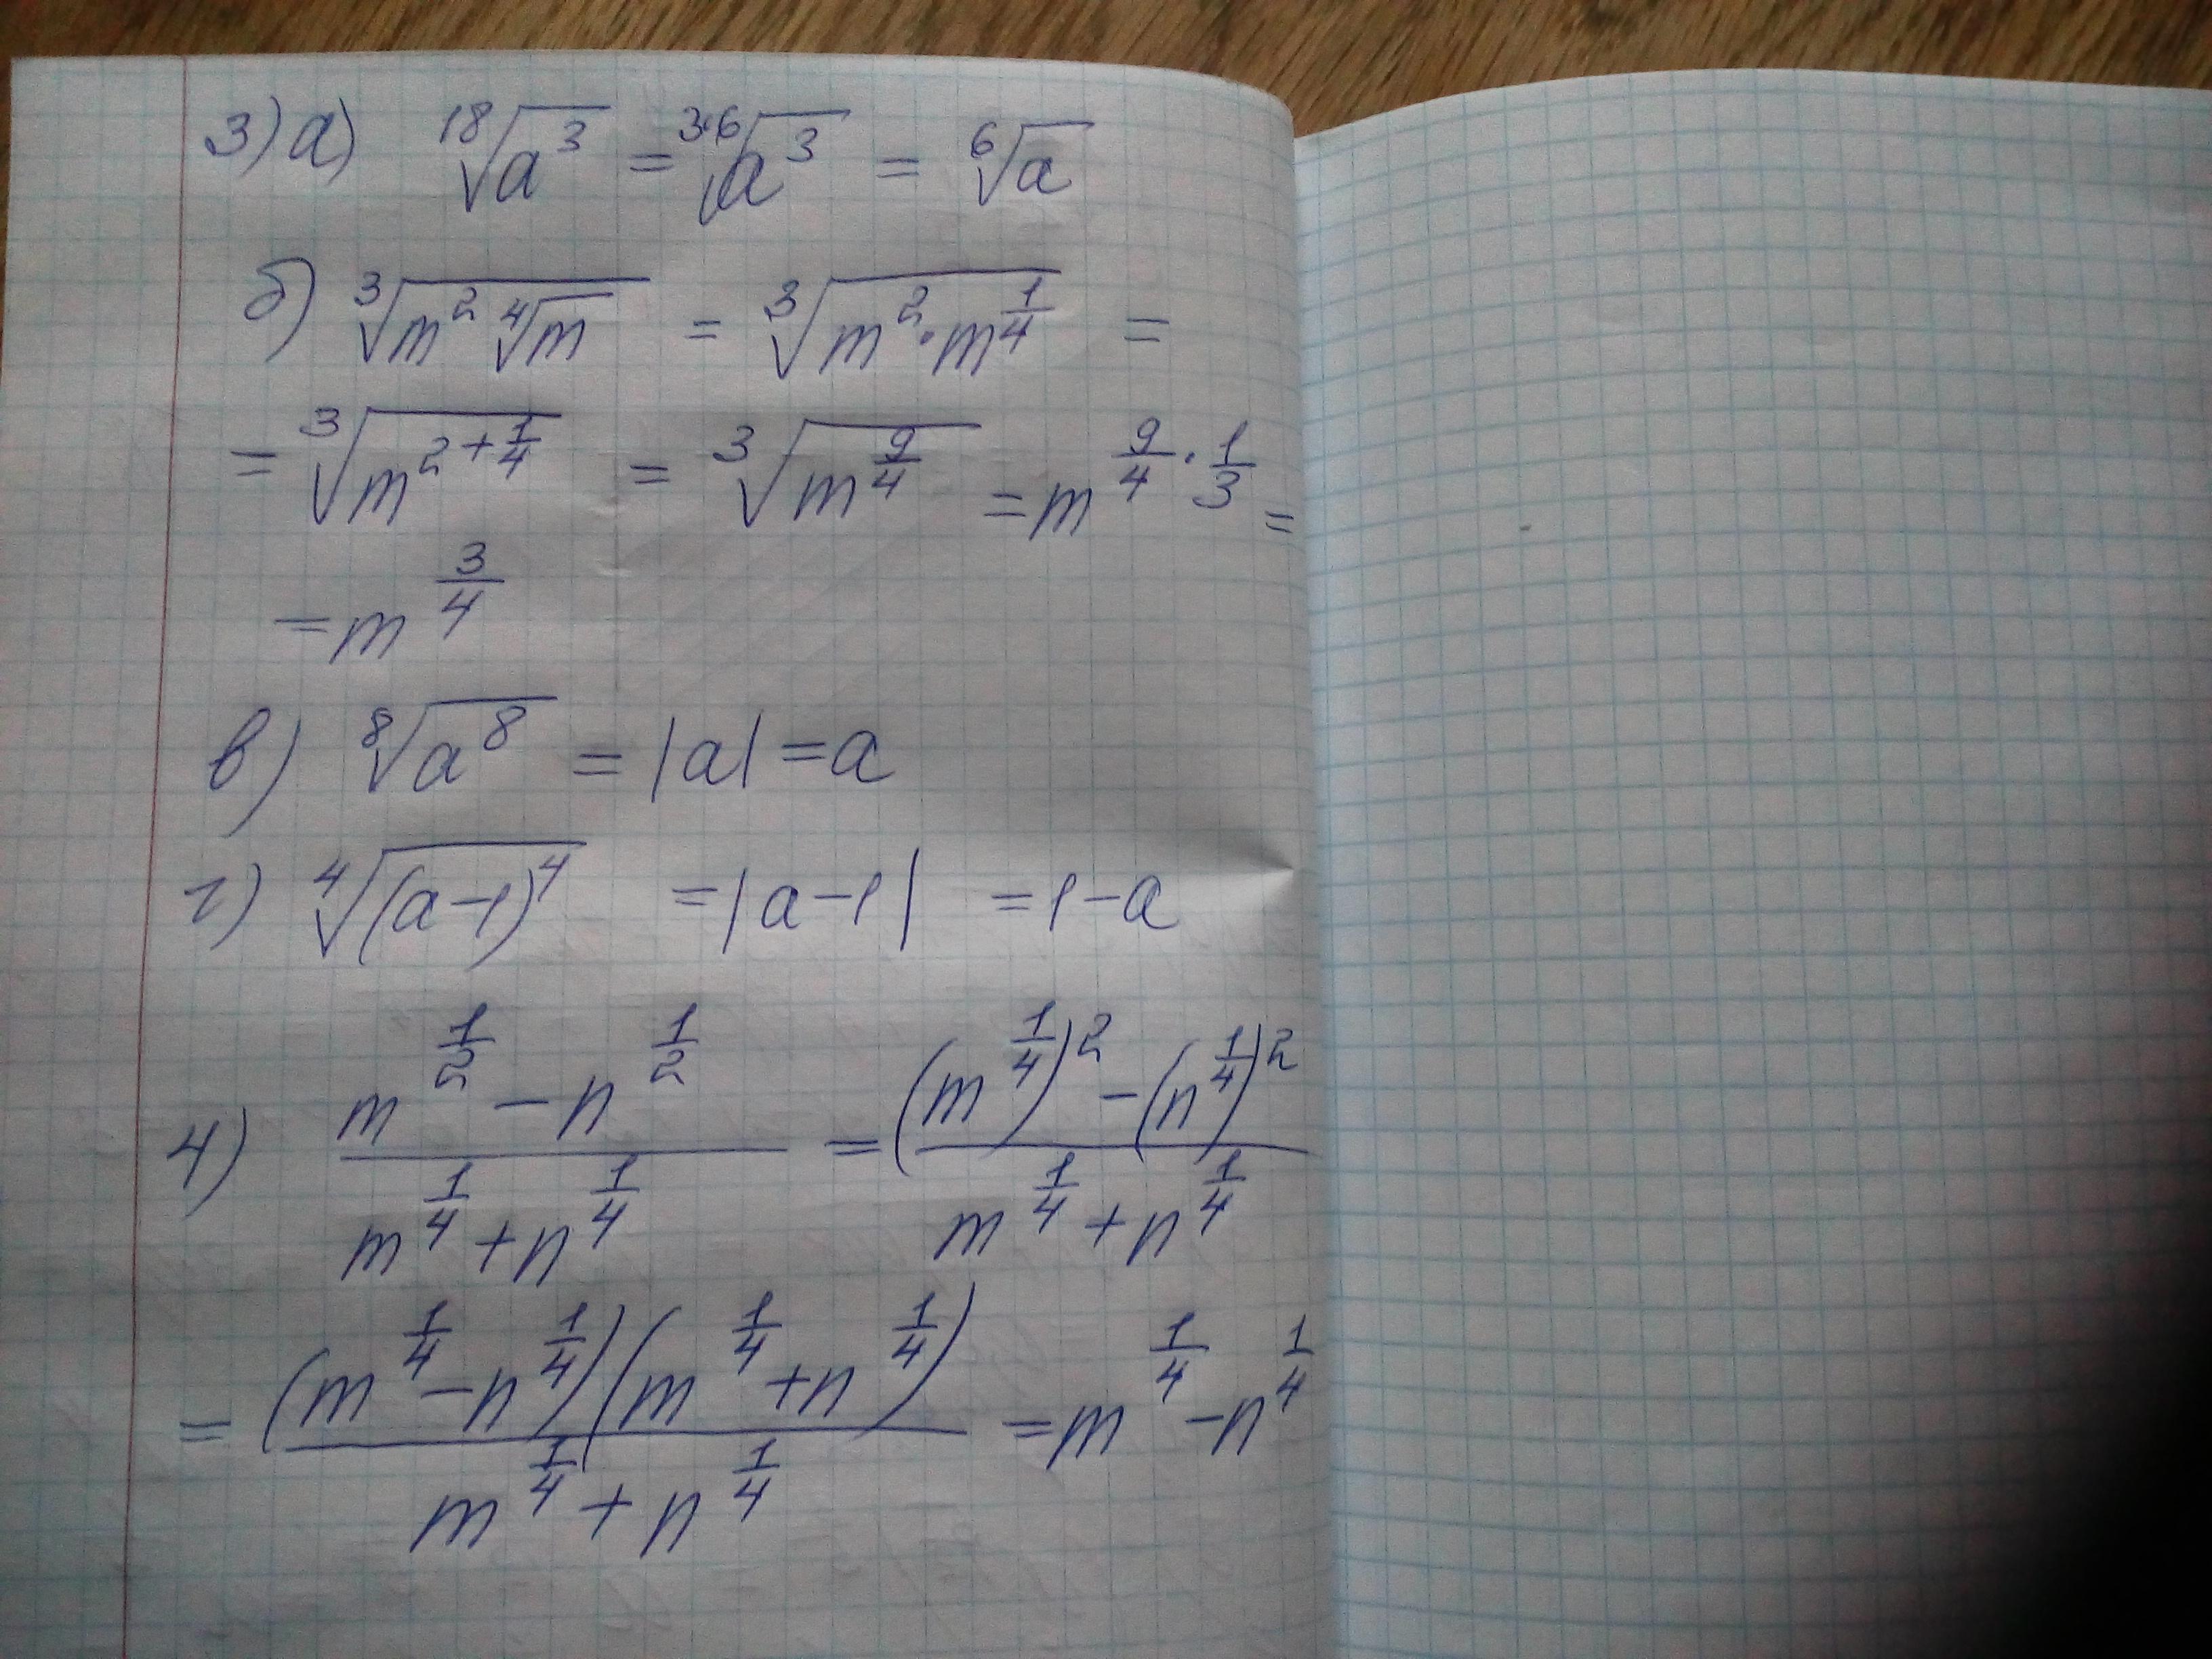 3) а) \sqrt[18]{a^3} = \sqrt[3·6]{a^3} = \sqrt[6]{a}
б) \sqrt[3]{m^2 \sqrt[4]{m}} = \sqrt[3]{m^2 · m^{\frac{1}{4}}} =
= \sqrt[3]{m^{2+\frac{1}{4}}} = \sqrt[3]{m^{\frac{9}{4}}} = m^{\frac{9}{4}·\frac{1}{3}} =
= m^{\frac{3}{4}}
в) \sqrt[8]{a^8} = |a| = a
г) \sqrt[4]{(a-1)^4} = |a-1| = 1-a
4) \frac{m^{\frac{1}{2}} - n^{\frac{1}{2}}}{m^{\frac{1}{4}} + n^{\frac{1}{4}}} = \frac{(m^{\frac{1}{4}})^2 - (n^{\frac{1}{4}})^2}{m^{\frac{1}{4}} + n^{\frac{1}{4}}}
= \frac{(m^{\frac{1}{4}} - n^{\frac{1}{4}})(m^{\frac{1}{4}} + n^{\frac{1}{4}})}{m^{\frac{1}{4}} + n^{\frac{1}{4}}} = m^{\frac{1}{4}} - n^{\frac{1}{4}}